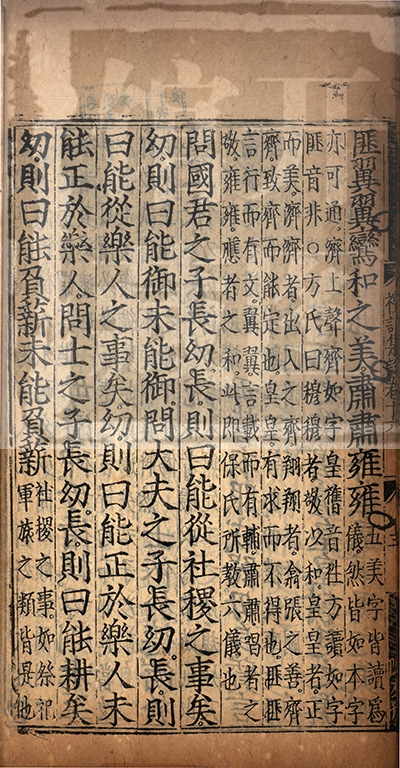 匪翼翼鸞和之美肅肅雍雍五美字皆讀爲
儀然皆如本字
亦可通齊上聲齊如字皇舊音往方讀如字
匪音非○方氏曰穆穆者敬以和皇皇者正
而美濟濟者出入之齊翔翔者翕張之善齊
齊致齊而能定也皇皇有求而不得也匪匪
言行而有文翼翼言載而有輔肅肅唱者之
敬雍雍應者之和此即保氏所教六儀也
問國君之子長幼長則曰能從社稷之事矣
幼則曰能御未能御問大夫之子長幼長則
曰能從樂人之事矣幼則曰能正於樂人未
能正於樂人問士之子長幼長則曰能耕矣
幼則曰能負薪未能負薪社稷之事如祭祀
軍旅之類皆是也